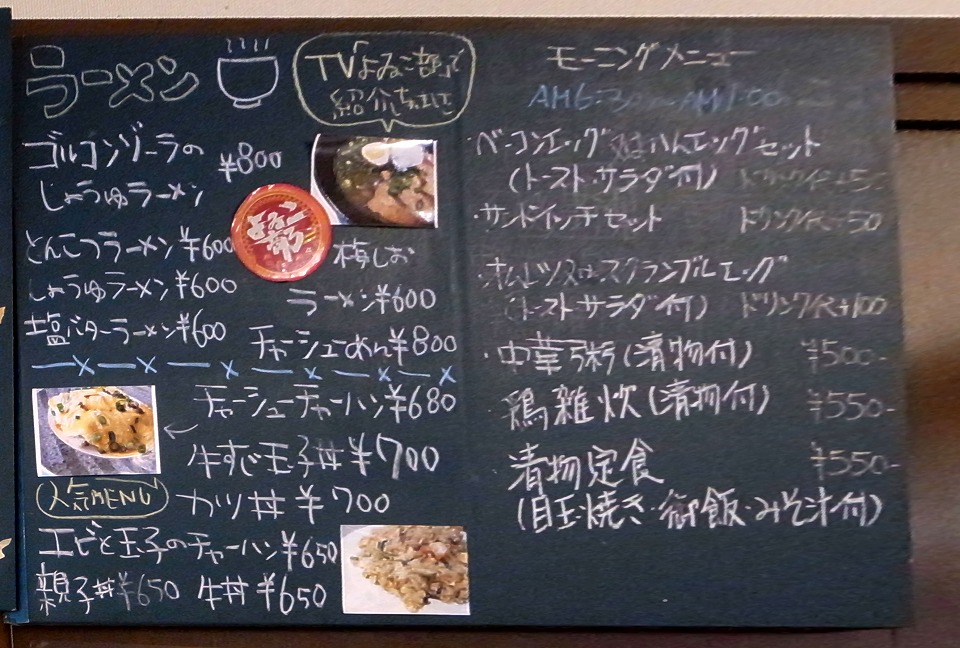 ラーメン
TV「よゐこ部」で
紹介されました
ゴルゴンゾーラの
しょうゆラーメン
¥800
とんこつラーメン ¥600
しょうゆラーメン ¥600
塩バターラーメン ¥600
梅しお
ラーメン ¥600
チャーシューめん ¥800
チャーシューチャーハン ¥680
牛すじ玉子丼 ¥700
人気MENU
カツ丼 ¥700
エビと玉子のチャーハン ¥650
親子丼 ¥650 牛丼 ¥650
モーニングメニュー
・ベーコンエッグ又はハムエッグセット
(トースト・サラダ付)
・サンドイッチセット ドリンク代+50
・オムレツ又はスクランブルエッグ
(トースト・サラダ付) ドリンク代+100
・中華粥(漬物付) ¥500-
・鶏雑炊(漬物付) ¥550-
・漬物定食 ¥550-
(目玉焼き・御飯・みそ汁付)